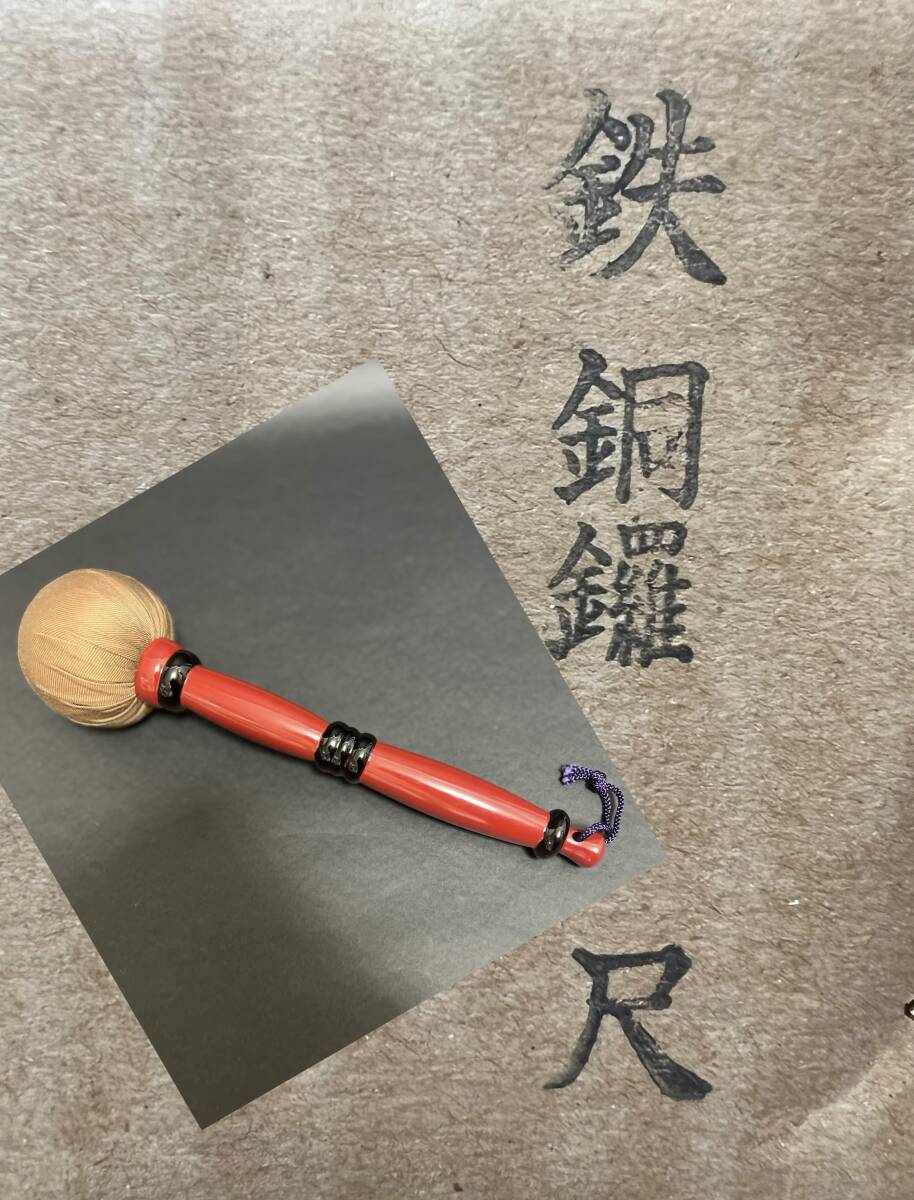 鉄銅鑼尺